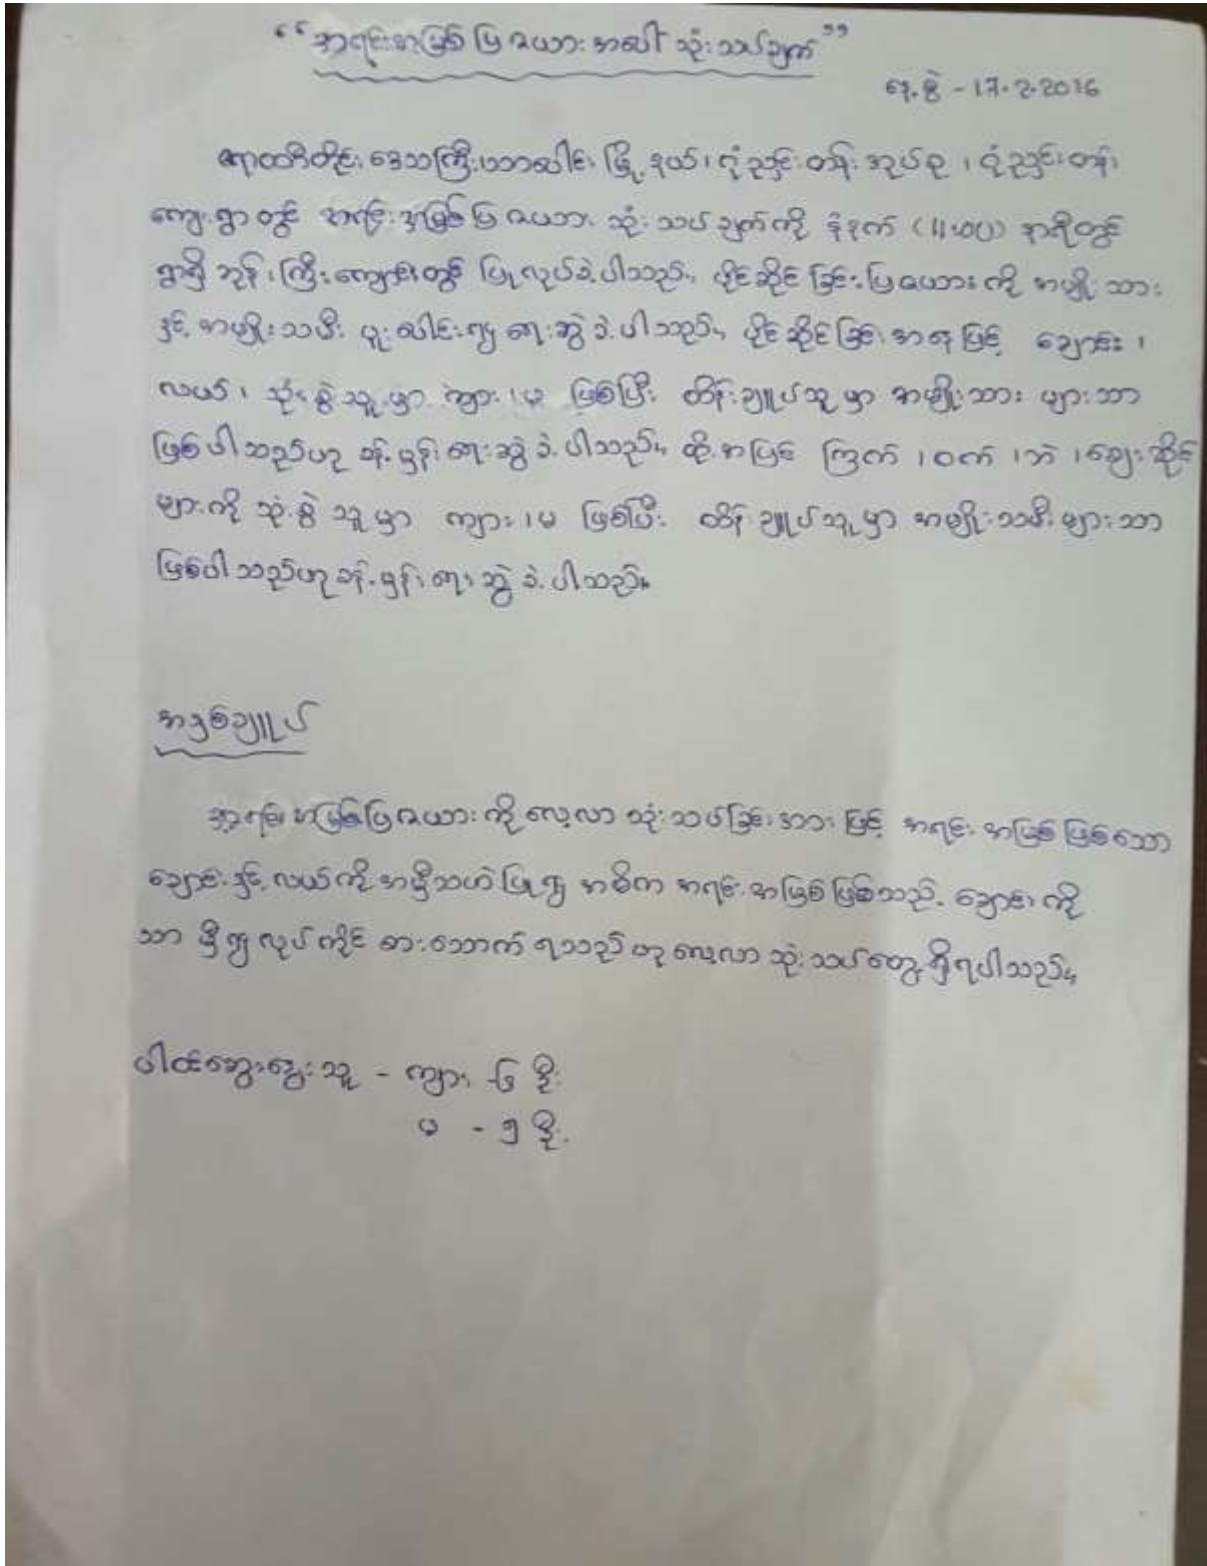 “အရင်းအမြစ်ပြဇယားအပေါ် သုံးသပ်ချက်”
နေ့စွဲ - 17.2.2016
ဧရာဝတီတိုင်းဒေသကြီး၊ မြို့နယ်၊ ဂုံညှင်းတန်းအုပ်စု၊ ဂုံညှင်းတန်း
ကျေးရွာတွင် အရင်းအမြစ်ပြဇယား သုံးသပ်ချက်ကို နံနက် (11:00) နာရီတွင်
ရွာရှိ ဘုန်းကြီးကျောင်းတွင် ပြုလုပ်ခဲ့ပါသည်။ ပိုင်ဆိုင်ခြင်းပြဇယားကို အမျိုးသား
နှင့် အမျိုးသမီး ပူးပေါင်း၍ ရေးဆွဲခဲ့ပါသည်။ ပိုင်ဆိုင်ခြင်းအနေဖြင့် ချောင်း၊
လယ်၊ သုံးစွဲသူမှာ ကျား၊မ ဖြစ်ပြီး ထိန်းချုပ်သူမှာ အမျိုးသားများသာ
ဖြစ်ပါသည်ဟု ခန့်မှန်းရေးဆွဲခဲ့ပါသည်။ ထို့အပြင် ကြက်၊ဝက်၊ဘဲ၊ဈေးဆိုင်
များကို သုံးစွဲသူမှာ ကျား၊မ ဖြစ်ပြီး ထိန်းချုပ်သူမှာ အမျိုးသမီးများသာ
ဖြစ်ပါသည်ဟု ခန့်မှန်းရေးဆွဲခဲ့ပါသည်။
အနှစ်ချုပ်
အရင်းအမြစ်ပြဇယားကို လေ့လာသုံးသပ်ခြင်းအားဖြင့် အရင်းအမြစ်ဖြစ်သော
ချောင်းနှင့်လယ်ကို အမှီသဟဲပြု၍ အဓိက အရင်းအမြစ်ဖြစ်သည့် ချောင်းကို
သာ မှီ၍ လုပ်ကိုင် စားသောက် ရသည်ဟု လေ့လာသုံးသပ်တွေ့ရှိရပါသည်။
ပါဝင်ဆွေးနွေးသူ - ကျား - ၆ ဦး
မ - ၅ ဦး